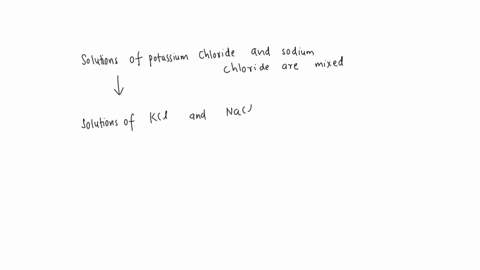 Solutions of potassium chloride and sodium
chloride are mixed
Solutions of KCl and NaCl